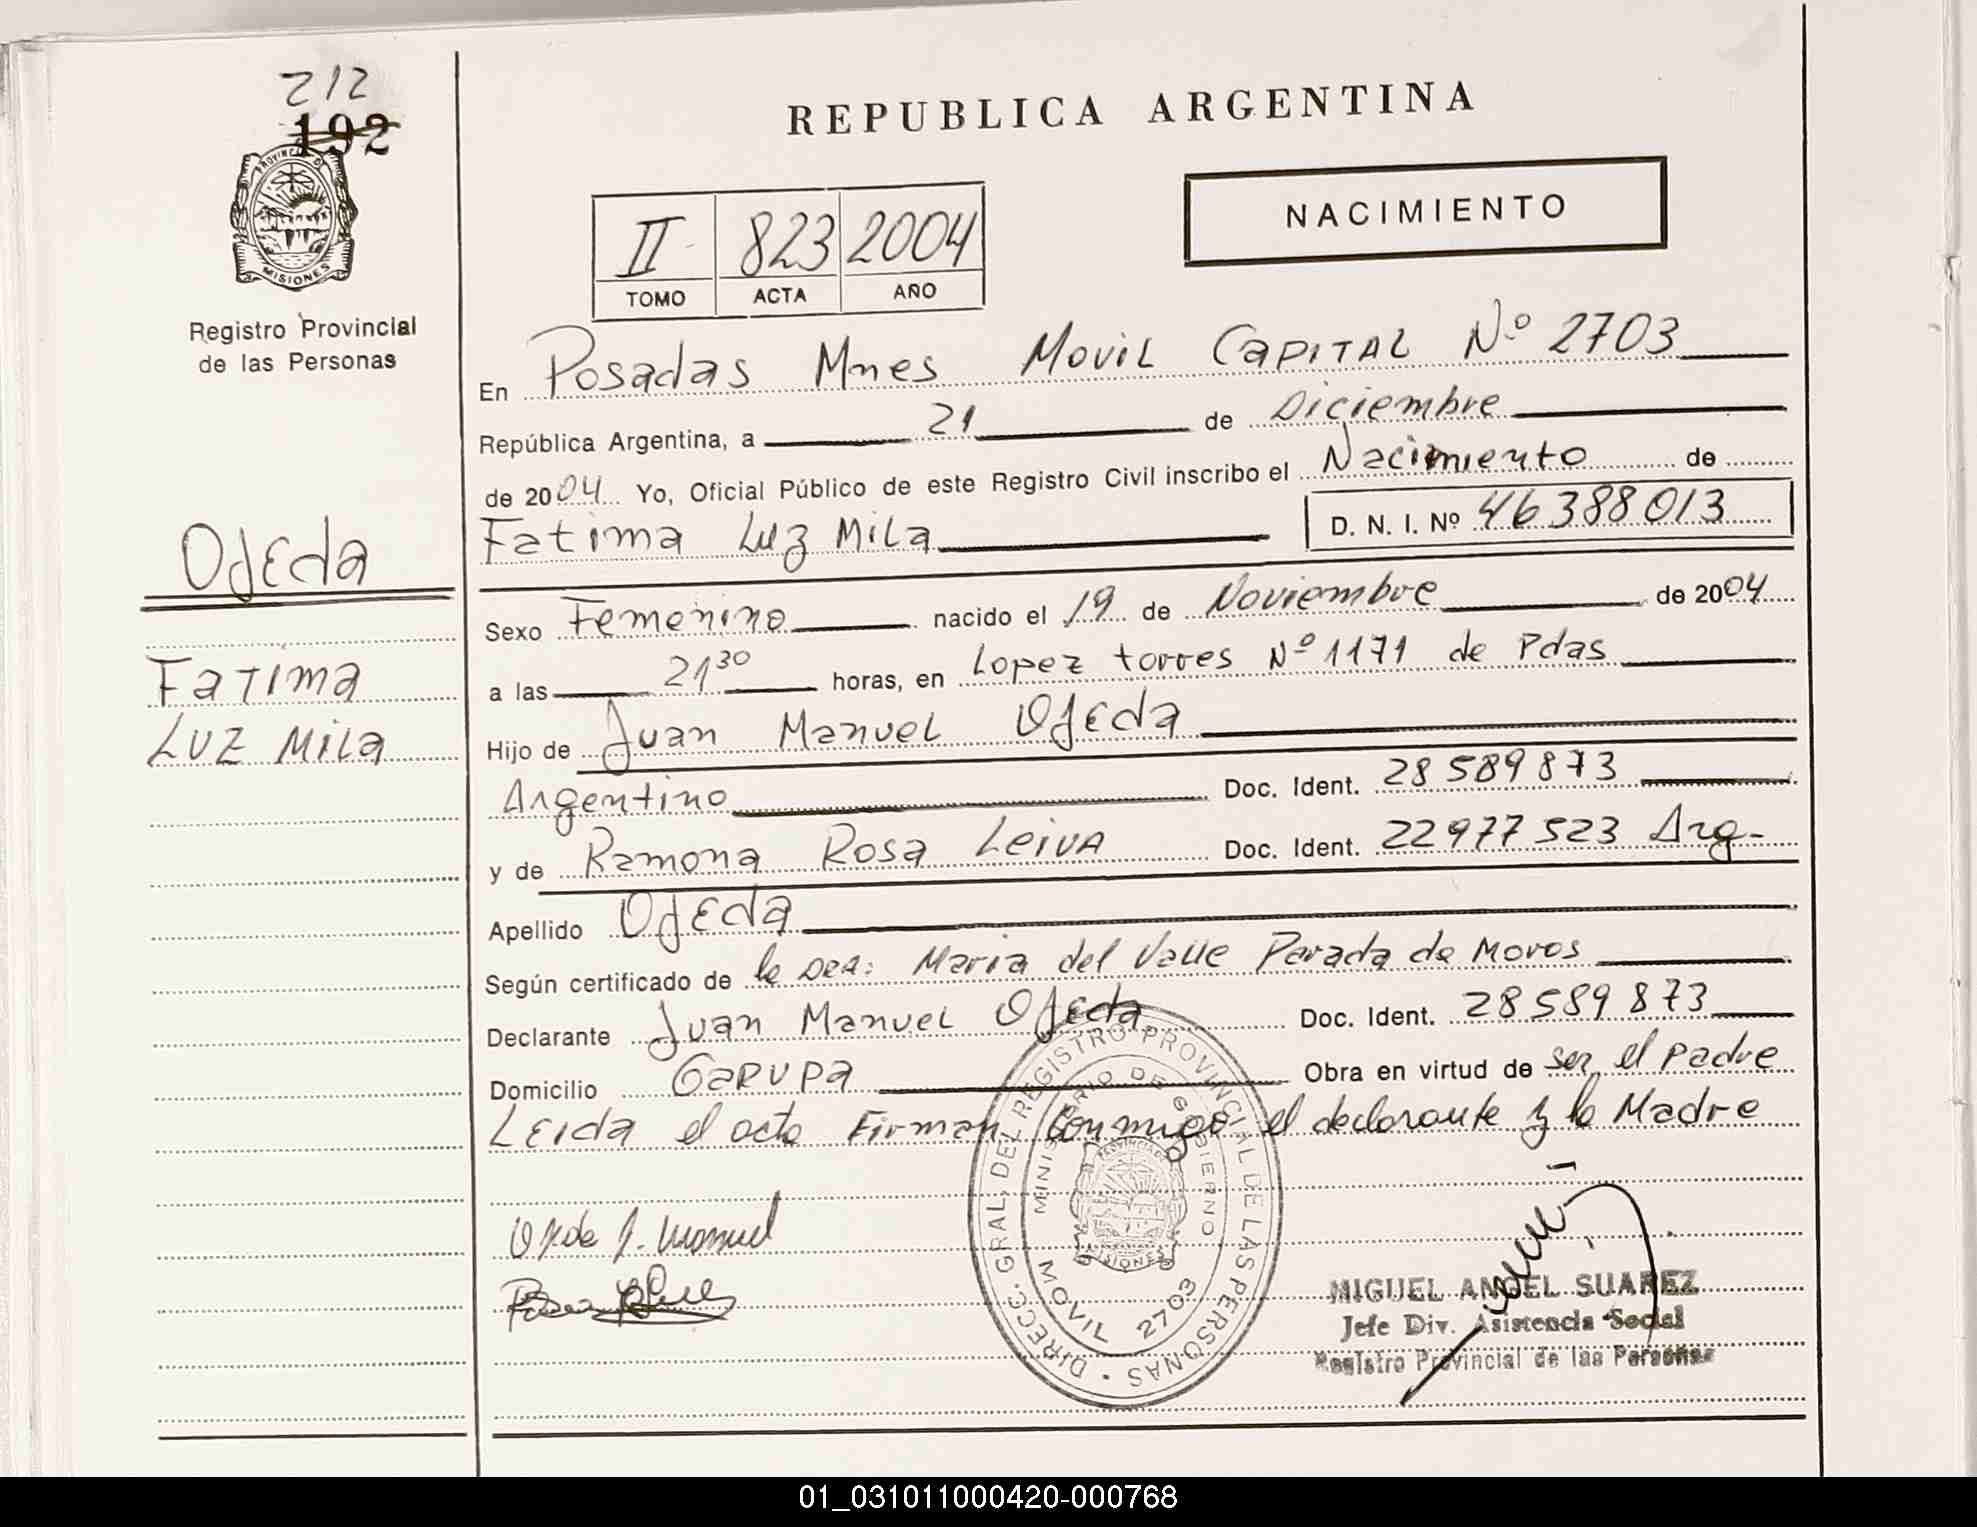 212
192
PROVINCIA D
MISIONES
Registro Provincial
de las Personas
Ojeda
Fatima
Luz Mila
REPUBLICA ARGENTINA
II 823 2004
TOMO ACTA AÑO
NACIMIENTO
En Posadas Mnes Movil Capital Nº 2703
República Argentina, a 21 de Diciembre
de 2004 Yo, Oficial Público de este Registro Civil inscribo el Nacimiento de
Fatima Luz Mila D. N. I. Nº 46388013
Sexo Femenino nacido el 19 de Noviembre de 2004
a las 21 30 horas, en Lopez torres Nº 1171 de Pdas
Hijo de Juan Manuel Ojeda
Argentino Doc. Ident. 28589873
y de Ramona Rosa Leiva Doc. Ident. 22977523 Arg-
Apellido Ojeda
Según certificado de la DRA: Maria del Valle Parada de Moros
Declarante Juan Manuel Ojeda Doc. Ident. 28589873
Domicilio Garupa Obra en virtud de ser el padre
Leida el acta Firman Conmigo el declarante y la Madre
DIRECC. GRAL. DEL REGISTRO PROVINCIAL DE LAS PERSONAS
MINISTERIO DE GOBIERNO
MISIONES
MOVIL 2703
Manuel
MIGUEL ANGEL SUAREZ
Jefe Div. Asistencia Social
Registro Provincial de las Personas
01_031011000420-000768